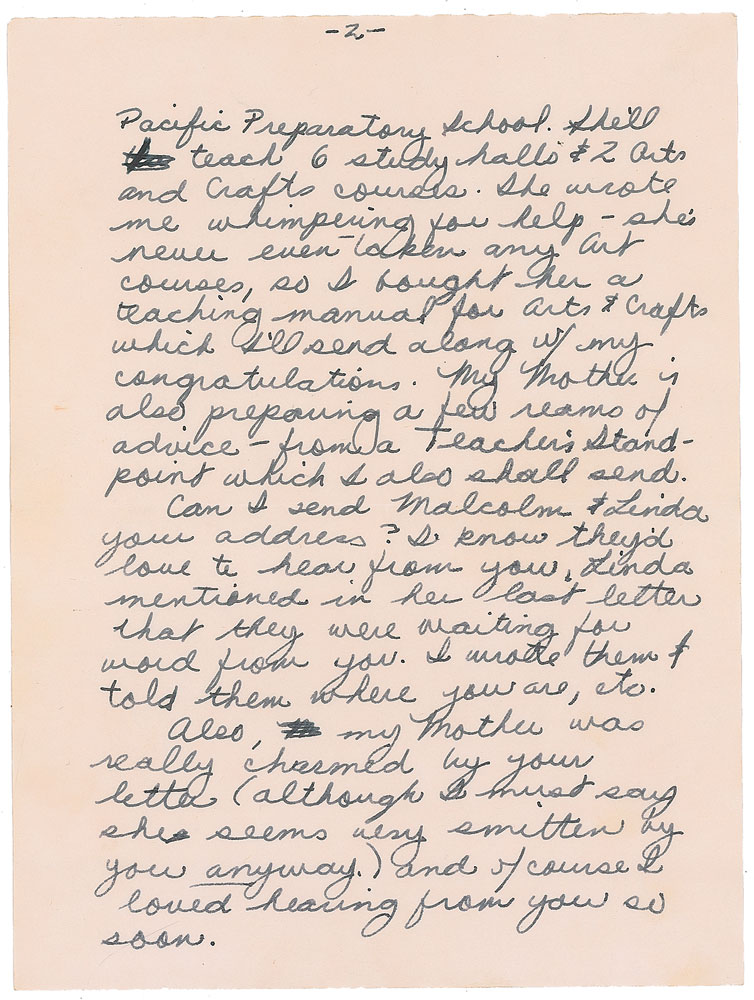 -2-
Pacific Preparatory School. She'll
teach 6 study halls & 2 Arts
and Crafts courses. She wrote
me whimpering for help - she's
never even taken any Art
courses, so I bought her a
teaching manual for Arts & Crafts
which I'll send along w/ my
congratulations. My Mother is
also preparing a few reams of
advice - from a Teacher's Stand-
point which I also shall send.
Can I send Malcolm & Linda
your address? I know they'd
love to hear from you, Linda
mentioned in her last letter
that they were waiting for
word from you. I wrote them &
told them where you are, etc.
Also, my Mother was
really charmed by your
letter (although I must say
she seems very smitten by
you anyway.) and of course I
loved hearing from you so
soon.